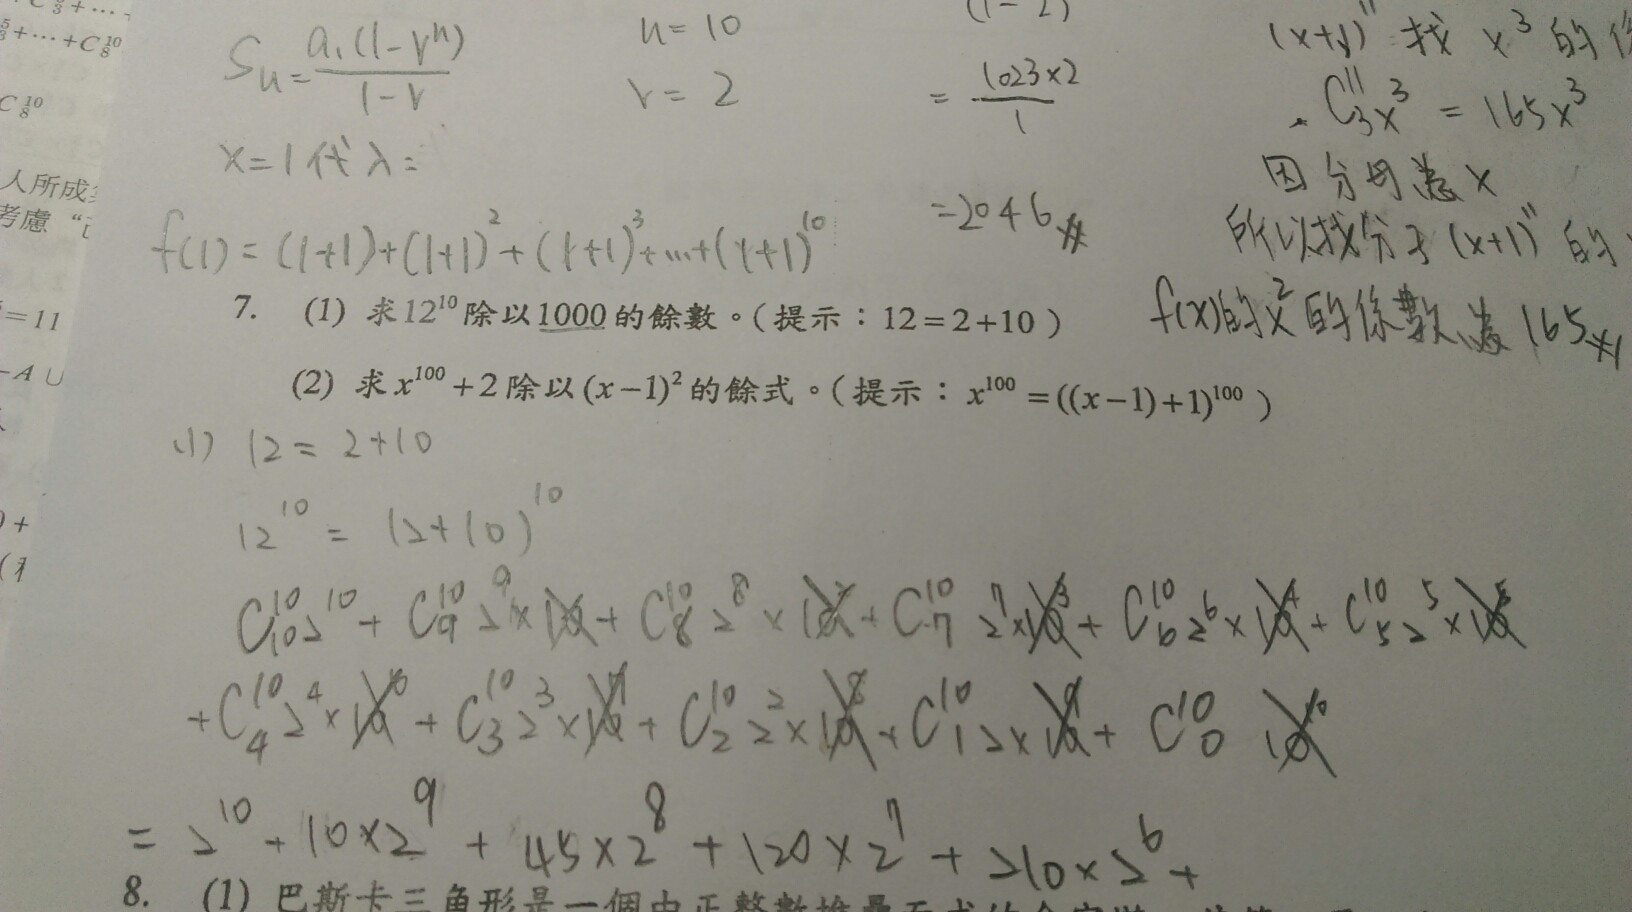 C₈¹⁰
Sn = a₁(1-rⁿ) / 1-r
n = 10
r = 2
= 1023×2 / 1
= 2046 #
x = 1 代入 =
f(1) = (1+1)+(1+1)²+(1+1)³+...+(1+1)¹⁰
找 x³ 的
C₃¹¹x³ = 165x³
因分母為x
所以找分子(x+1)¹¹的
f(x)的x²的係數為165 #
人所成
考慮“
=11
7. (1) 求12¹⁰除以1000的餘數。(提示:12=2+10)
(2) 求x¹⁰⁰+2除以(x-1)²的餘式。(提示:x¹⁰⁰=((x-1)+1)¹⁰⁰)
(1) 12 = 2+10
12¹⁰ = (2+10)¹⁰
C₁₀¹⁰2¹⁰ + C₉¹⁰2⁹×10 + C₈¹⁰2⁸×10² + C₇¹⁰2⁷×10³ + C₆¹⁰2⁶×10⁴ + C₅¹⁰2⁵×10⁵
+C₄¹⁰2⁴×10⁶ + C₃¹⁰2³×10⁷ + C₂¹⁰2²×10⁸ + C₁¹⁰2×10⁹ + C₀¹⁰ 10¹⁰
= 2¹⁰ + 10×2⁹ + 45×2⁸ + 120×2⁷ + 210×2⁶ +
8. (1) 巴斯卡三角形是一個由正整數堆疊而成的